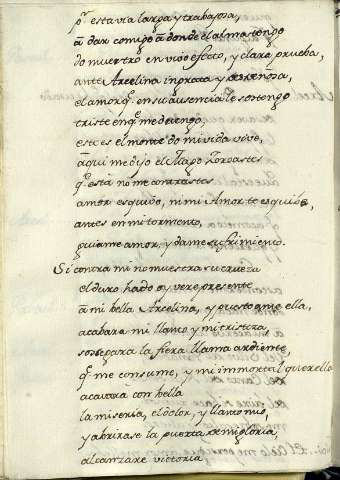 pr. esta via larga y trabajosa,
a dar comigo a donde el alma tengo
do muestro en vivo efeto, y clara prueba,
ante Arcelina ingrata y desdeñosa,
el amor q. en su ausencia le sostengo
triste en q. me detengo,
este es el monte do mi vida vive,
aqui me dijo el Mago Zoroastes
q. esta no me contrastes
amor esquivo, ni mi Amor te esquive,
antes en mi tormento,
guiame amor, y dame sufrimiento.
Si contra mi no muestra su crueza
el duro hado oy, vere presente
a mi bella Arcelina, y puesto ante ella,
acabara mi llanto y mi tristeza
sosegara la fiera llama ardiente,
q. me consume, y mi immortal querella
acavara con bella
la miseria, el dolor, y llanto mio,
y abrirase la puerta de mi gloria,
alcanzare victoria